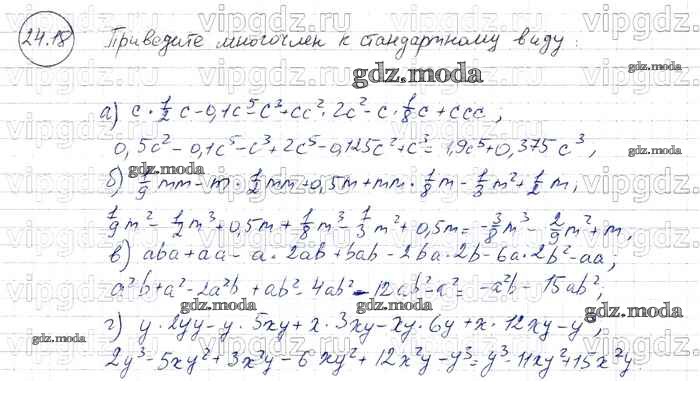 24.18 Приведите многочлен к стандартному виду:
а) c·1/2 c-0,1c⁵-c³+cc²·2c²-c·1/8 c+ccc;
0,5c²-0,1c⁵-c³+2c⁵-0,125c²+c³=1,9c⁵+0,375c³,
б) 1/9 mm-m·1/2 mm+0,5m+mm·1/8 m-1/3 m²+1/2 m;
1/9 m²-1/2 m³+0,5m+1/8 m³-1/3 m²+0,5m=-3/8 m³-2/9 m²+m;
в) aba+aa-a·2ab+bab-2ba·2b-6a·2b²-aa;
a²b+a²-2a²b+ab²-4ab²-12ab²-a²=-a²b-15ab²;
г) y·2yy-y·5xy+x·3xy-xy·6y+x·12xy-y³;
2y³-5xy²+3x²y-6xy²+12x²y-y³=y³-11xy²+15x²y.
gdz.moda
gdz.moda
gdz.moda
gdz.moda
gdz.moda
gdz.moda
gdz.moda
gdz.moda
vipgdz.ru